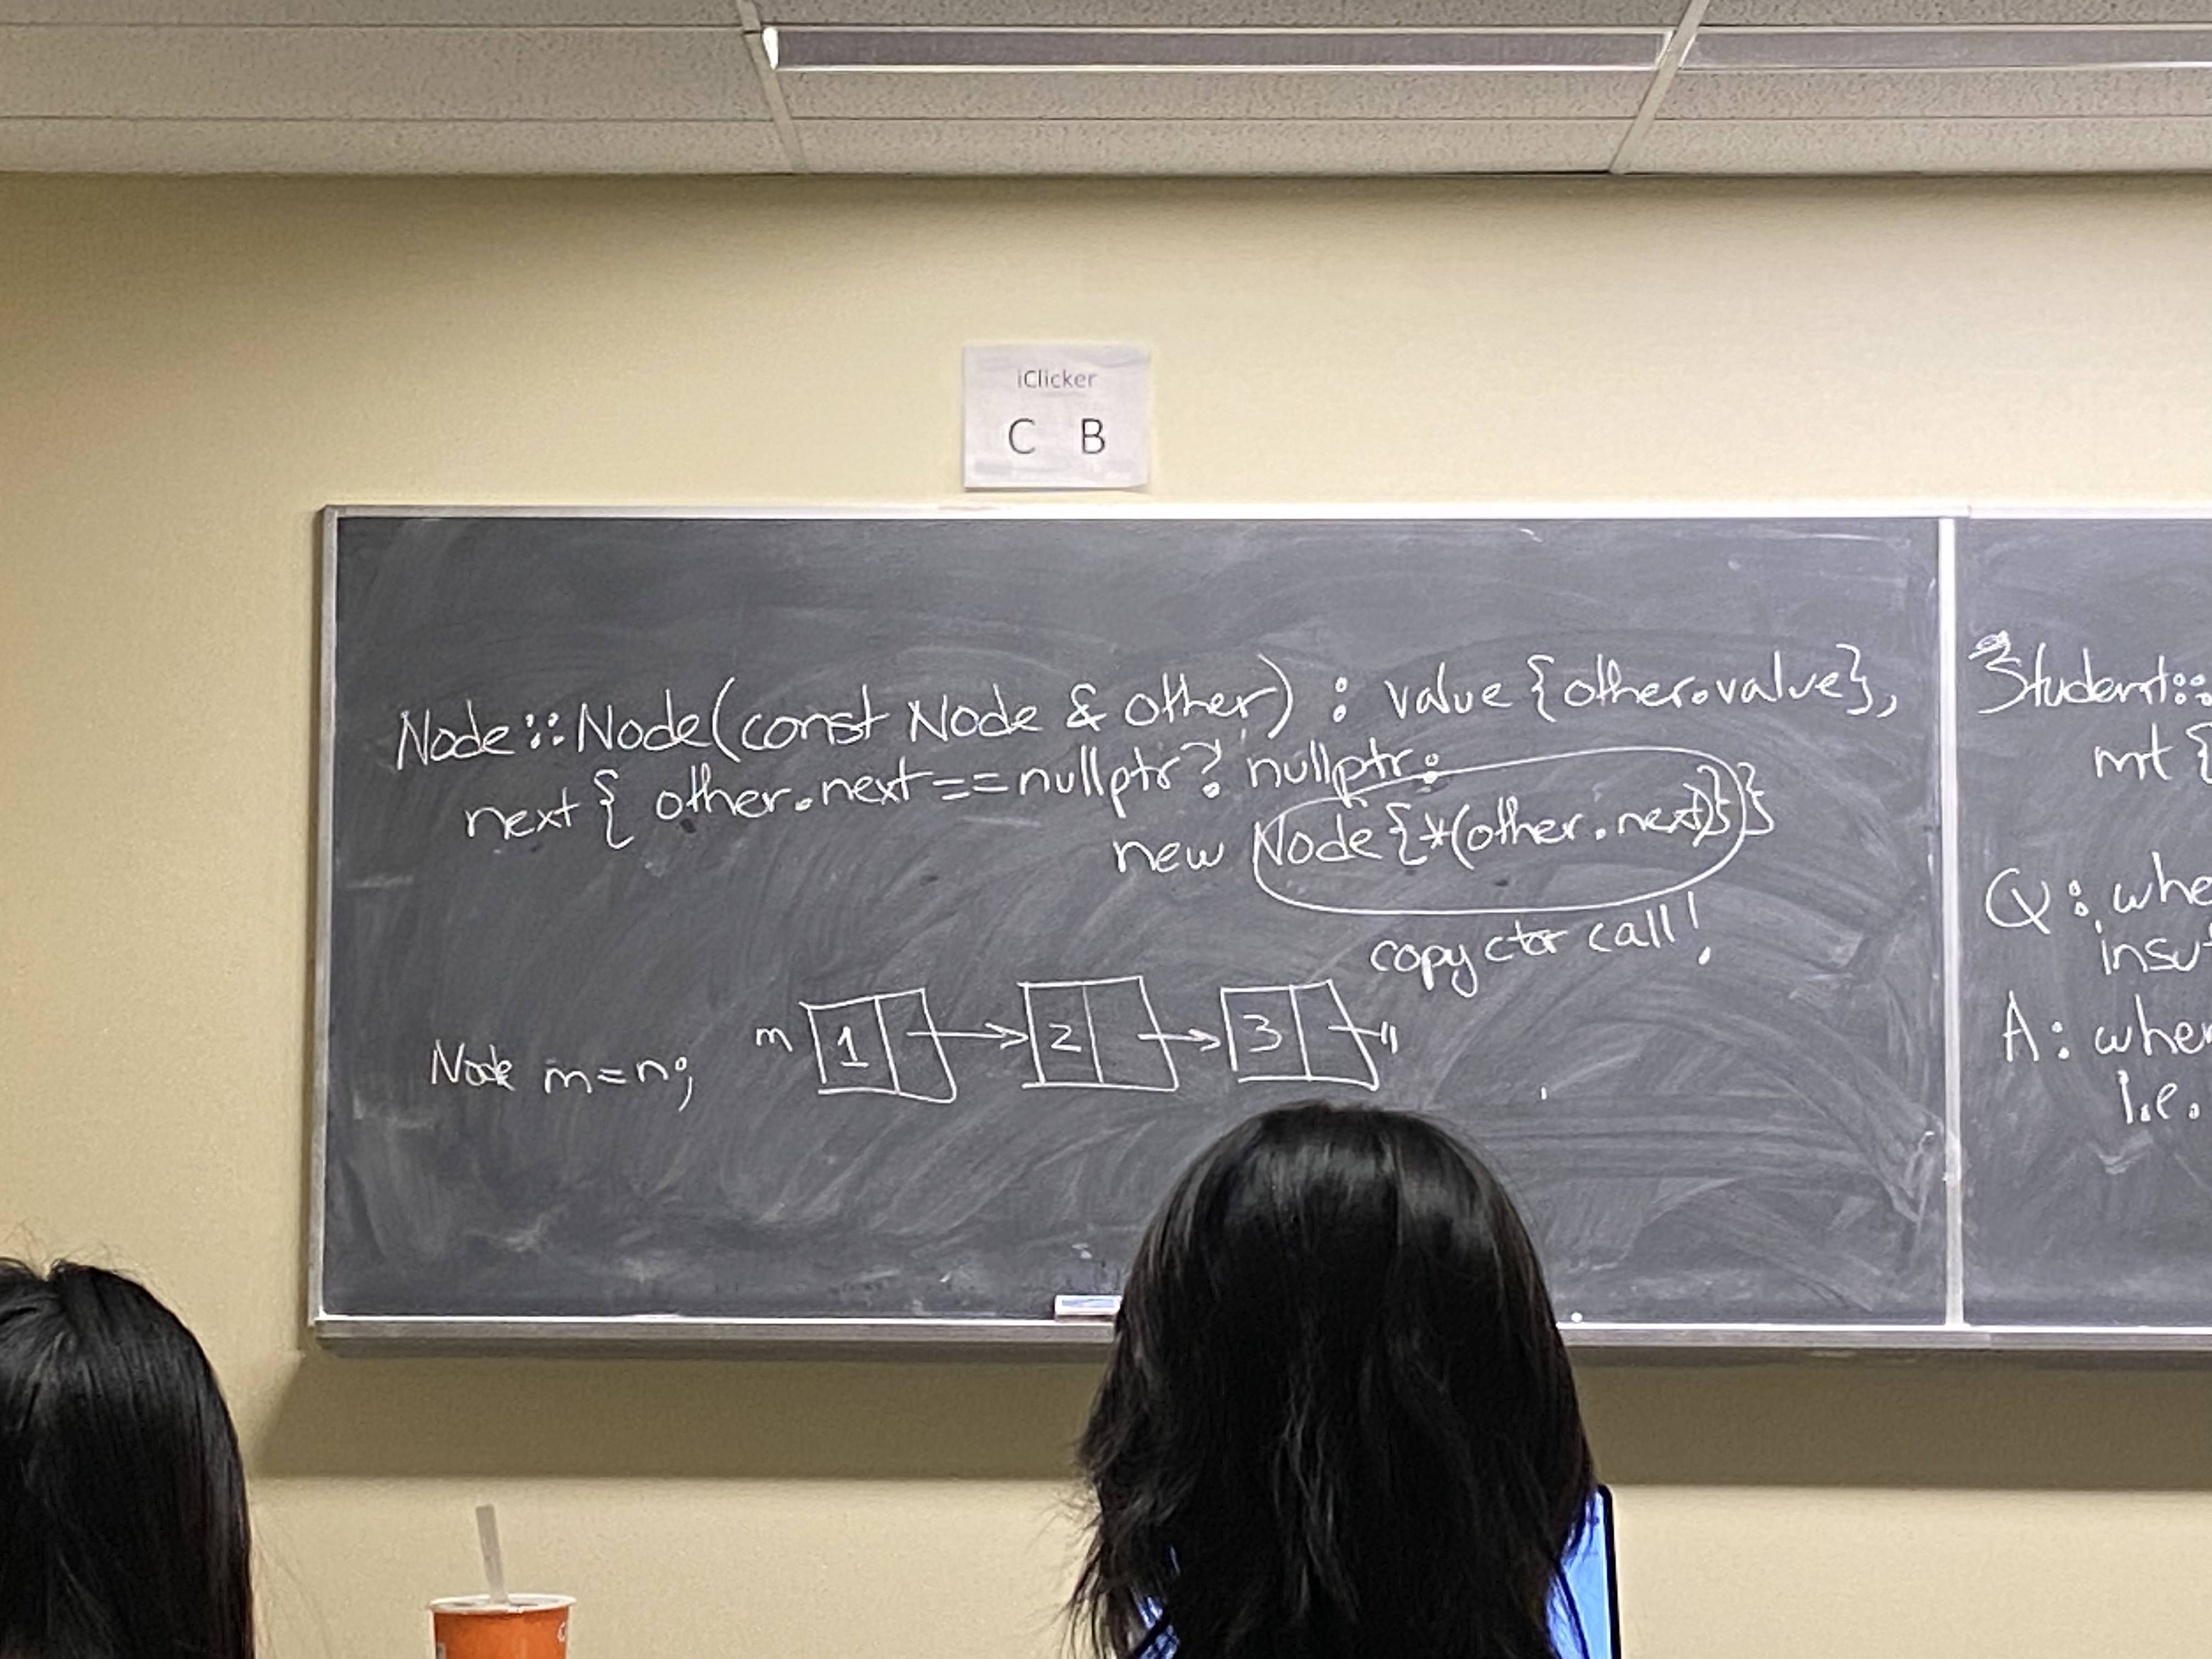 iClicker
C B
Node::Node(const Node & other) : value {other.value},
next { other.next==nullptr? nullptr:
new Node{*(other.next)}}
copy ctor call!
Node m=n;
m 1 2 3
Student::
mt {
Q:
A:
I.e.